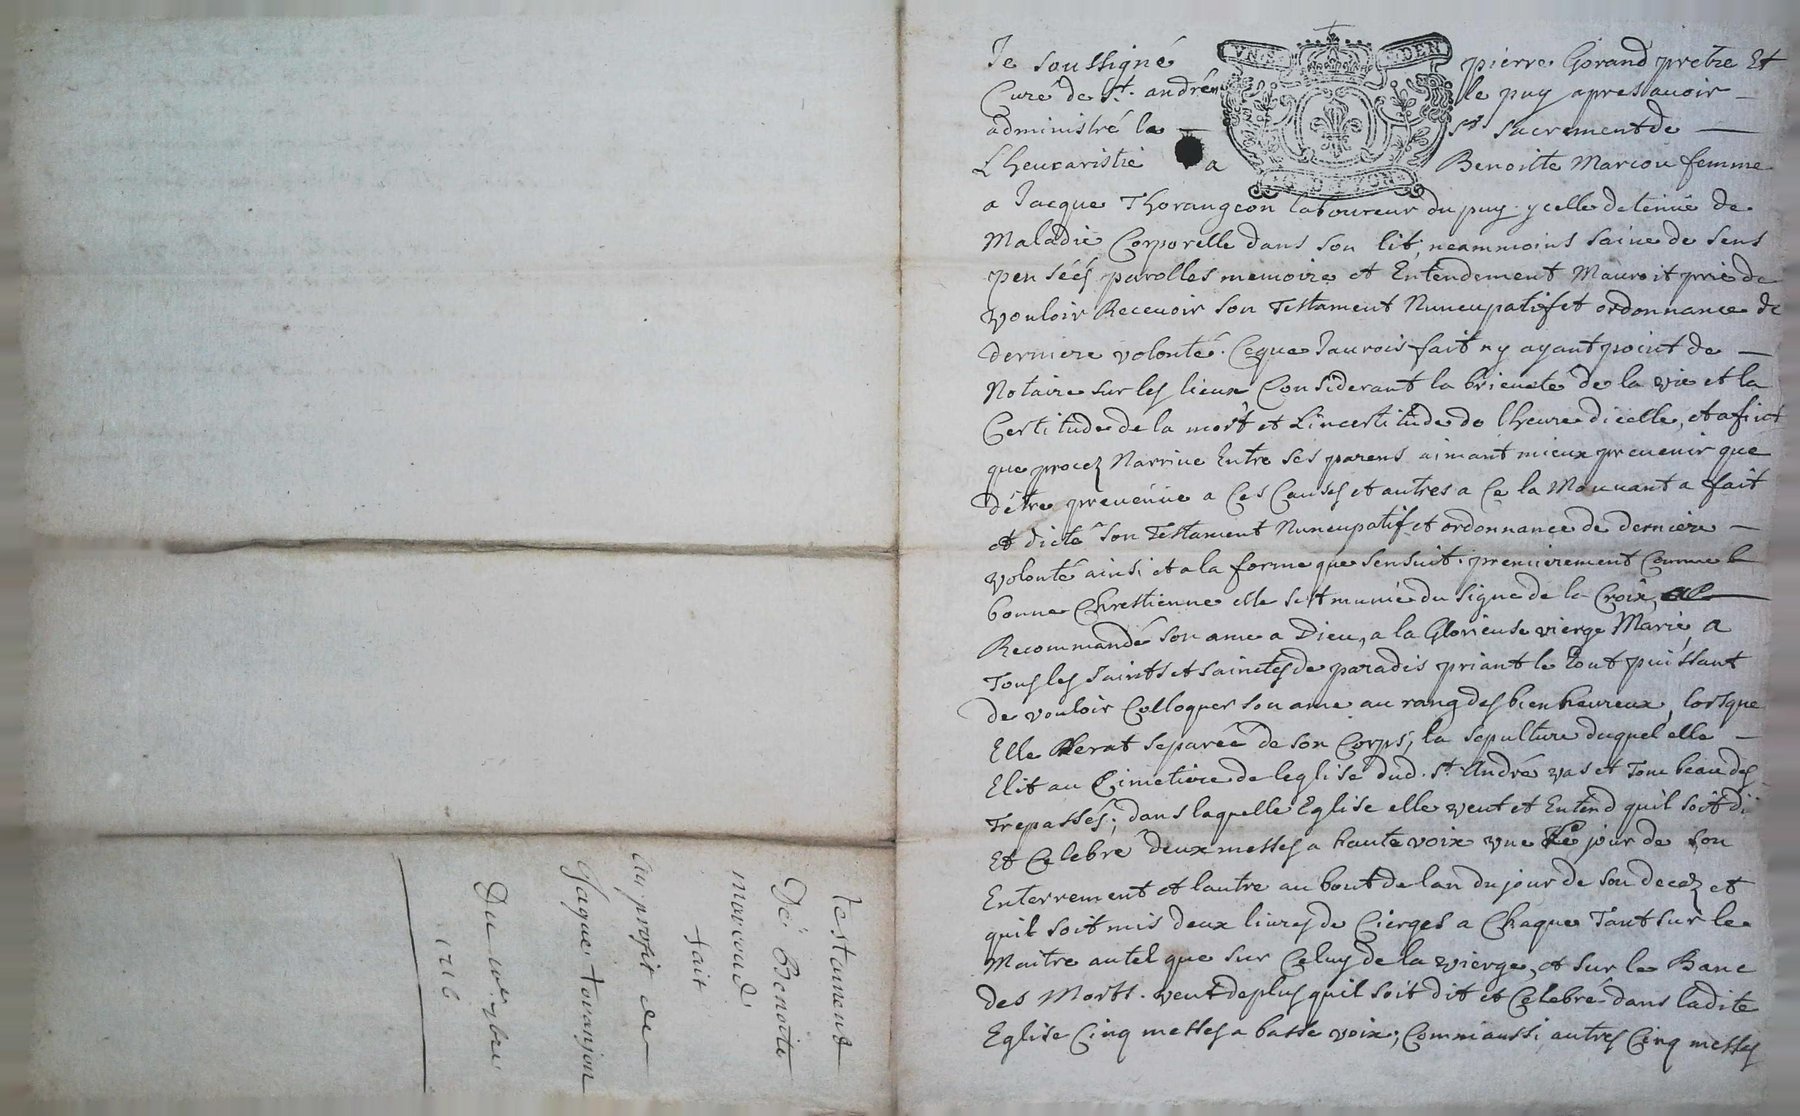 Testament
De Benoite
marcoud
fait
au profit de
Jaque toranjon
Du
1716
VN S DEN
Je soussigné pierre Gorand pretre Et
Curé de St. andré le puy apres auoir
administré la st sacrement de
Lheucaristie a Benoitte Marcou femme
a Jacque Thorangeon laboureur du puy ycelle detenüe de
Maladie Corporelle dans son lit, neammoins saine de sens
pensées parolles memoire et Entendement Mauroit prié de
vouloir Receuoir son Testament Nuncupatif et ordonnance de
derniere volonté. Ceque Jaurois fait ny ayant point de
Notaire sur les lieux Considerant la brieueté de la vie et la
Certitude de la mort et Lincertitude de lheure dicelle, et afin
que procez Narriue Entre ses parens aimant mieux preuenir que
détre preuenüe a Ces Causes et autres a Ce la Mouuant a fait
et dicté son Testament Nuncupatif et ordonnance de derniere
volonté ainsi et a la forme que sensuit. premierement Comme
bonne Chrestienne elle sest munie du signe de la Croix,
Recommandé son ame a Dieu, a la Glorieuse vierge Marie, a
Tous les saints et saintes de paradis priant le Tout puissant
de vouloir Colloquer son ame au rang des bienheureux, lorsque
Elle serat separée de son Corps, la sepulture duquel elle
Elit au Cimetiere de leglise dud. St. André vas et Tombeau des
Trepassés; dans laquelle Eglise elle veut et Entend quil soit di
Et Celebré deux messes a haute voix vne Le jour de son
Enterrement et lautre au bout de lan du jour de son decez et
quil soit mis deux liures de Cierges a Chaque Tant sur le
Maitre autel que sur Celuy de la vierge, et sur le Banc
des Morts. veut de plus quil soit dit et Celebré dans ladite
Eglise Cinq messes a basse voix; Comm aussi autres Cinq messes